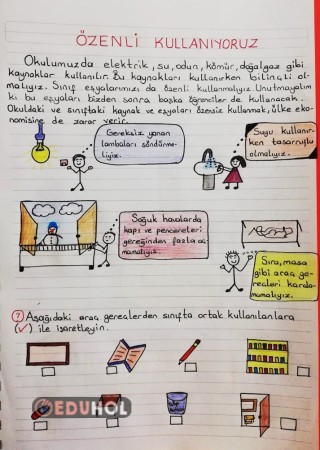 ÖZENLİ KULLANIYORUZ
Okulumuzda elektrik, su, odun, kömür, doğalgaz gibi
kaynaklar kullanılır. Bu kaynakları kullanırken bilinçli ol-
malıyız. Sınıf eşyalarımızı da özenli kullanmalıyız. Unutmayalım
ki bu eşyaları bizden sonra başka öğrenciler de kullanacak.
Okuldaki ve sınıftaki kaynak ve eşyaları özensiz kullanmak, ülke eko-
nomisine de zarar verir.
Gereksiz yanan
lambaları söndürme-
liyiz.
Suyu kullanır-
ken tasarruflu
olmalıyız.
Soğuk havalarda
kapı ve pencereleri
gereğinden fazla aç-
mamalıyız.
Sıra, masa
gibi araç ge-
reçleri karala-
mamalıyız.
? Aşağıdaki araç gereçlerden sınıfta ortak kullanılanlara
(✓) ile işaretleyin.
EDUHOL